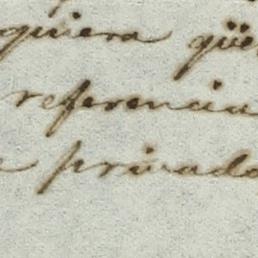 quiera qüe
referencia
privado